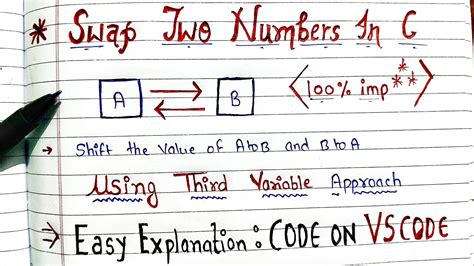 * Swap Two Numbers In C
A B <100% imp**>
→ Shift the value of A to B and B to A
Using Third Variable Approach
→ Easy Explanation : CODE ON VSCODE